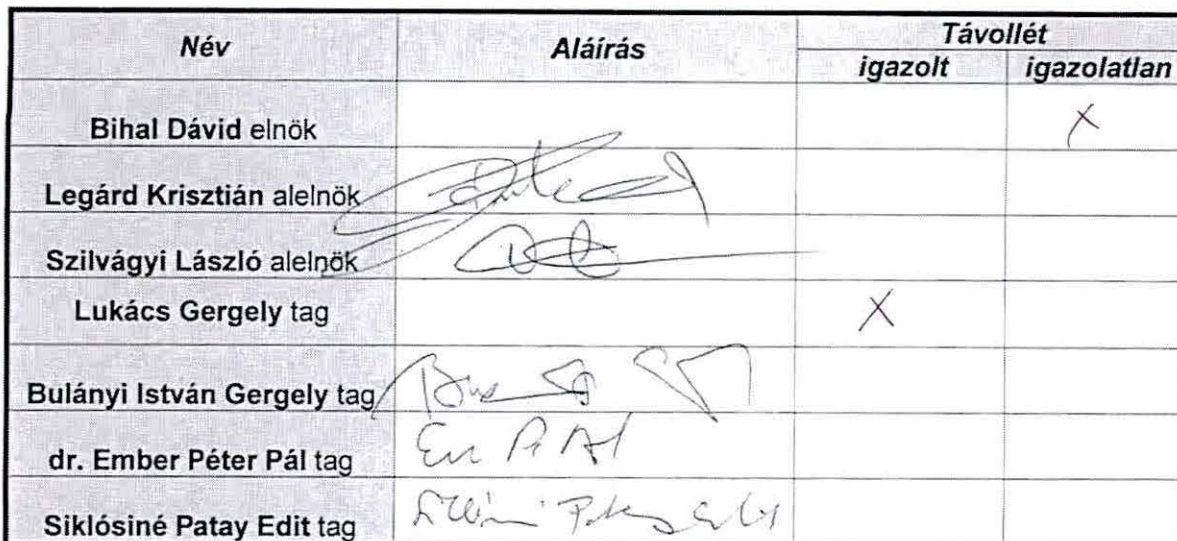 Név Aláírás Távollét
igazolt igazolatlan
Bihal Dávid elnök X
Legárd Krisztián alelnök
Szilvágyi László alelnök
Lukács Gergely tag X
Bulányi István Gergely tag
dr. Ember Péter Pál tag
Siklósiné Patay Edit tag